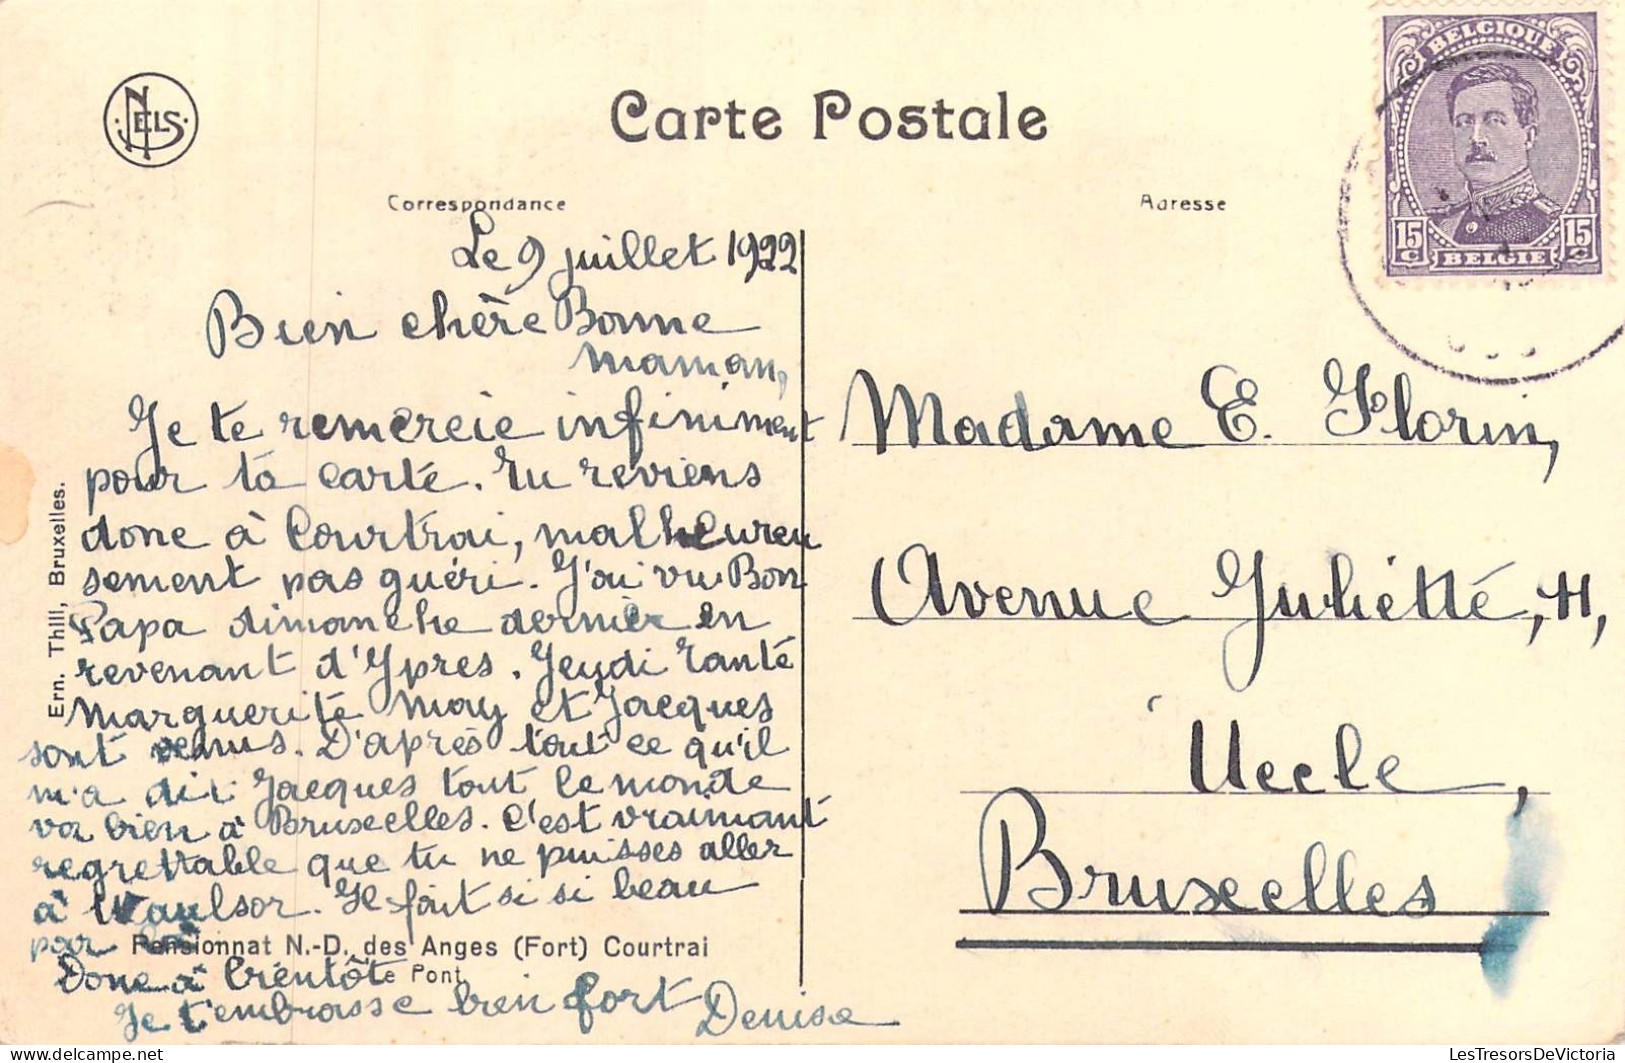 NELS
Carte Postale
Correspondance
Adresse
BELGIQUE
15 C
15 C
BELGIE
Le 9 juillet 1922
Bien chère Bonne
maman,
Je te remercie infiniment
pour ta carte. Tu reviens
donc à Courtrai, malheureu
sement pas guéri. J'ai vu Bon
Papa dimanche dernier en
revenant d'Ypres. Jeudi Tante
Marguerite May et Jacques
sont venus. D'après tout ce qu'il
m'a dit Jacques tout le monde
va bien à Bruxelles. C'est vraimant
regrettable que tu ne puisses aller
à Waulsor. Il fait si si beau
par
Pensionnat N.-D. des Anges (Fort) Courtrai
Pont
Donc à bientôt
Je t'embrasse bien fort
Denise
Ern. Thill, Bruxelles.
Madame E. Florin,
Avenue Juliette,
Uccle,
Bruxelles
LesTresorsDeVictoria
LesTresorsDeVictoria.com